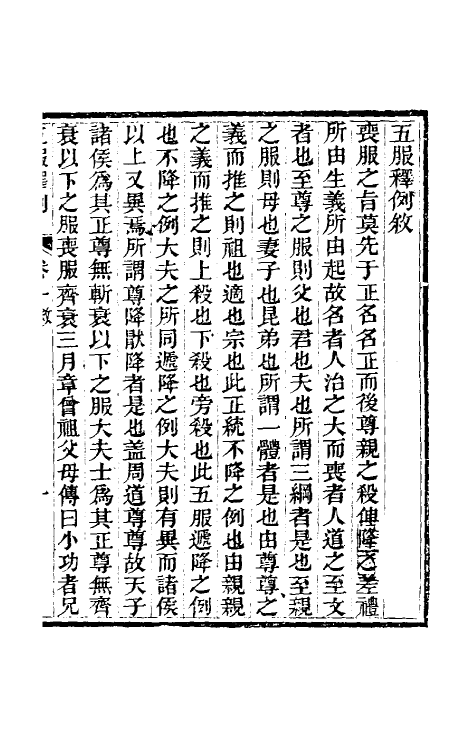 五服釋例敘
喪服之旨莫先于正名名正而後尊親之殺伸降之差禮
所由生義所由起故名者人治之大而喪者人道之至文
者也至尊之服則父也君也夫也所謂三綱者是也至親
之服則母也妻子也昆弟也所謂一體者是也由尊尊之
義而推之則祖也適也宗也此正統不降之例也由親親
之義而推之則上殺也下殺也旁殺也此五服遞降之例
也不降之例大夫之所同遞降之例大夫則有異而諸侯
以上又異焉所謂尊降厭降者是也蓋周道尊尊故天子
諸侯爲其正尊無斬衰以下之服大夫士爲其正尊無齊
衰以下之服喪服齊衰三月章曾祖父母傳曰小功者兄
五服釋例 卷一敘 一